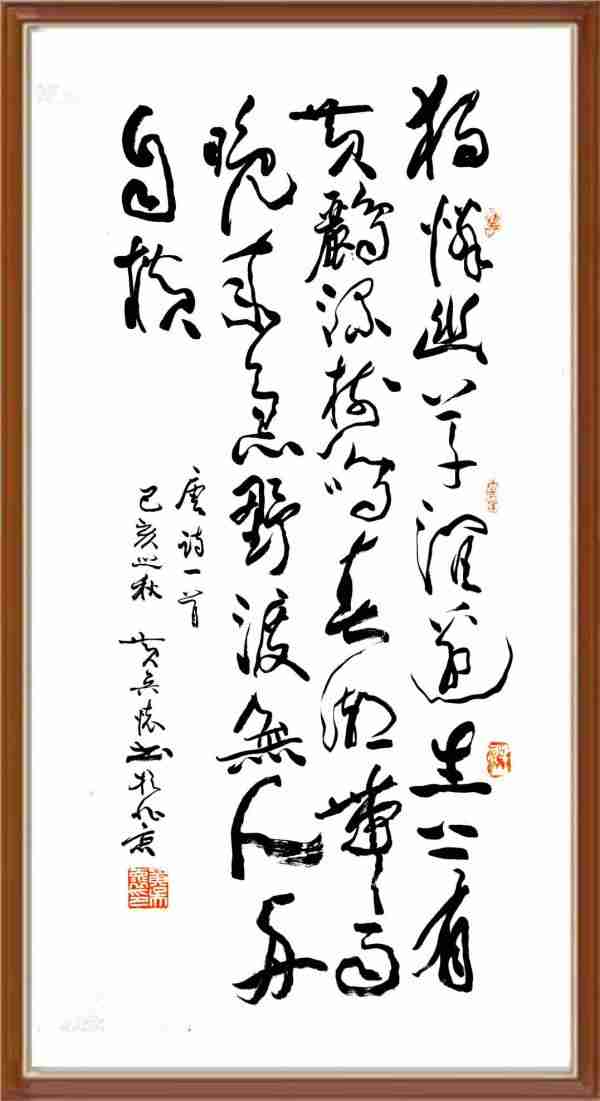 獨憐幽草澗邊生上有
黄鸝深樹鳴春潮帶雨
晚來急野渡無人舟
自橫
唐詩一首
己亥之秋 黄兵懷书於北京